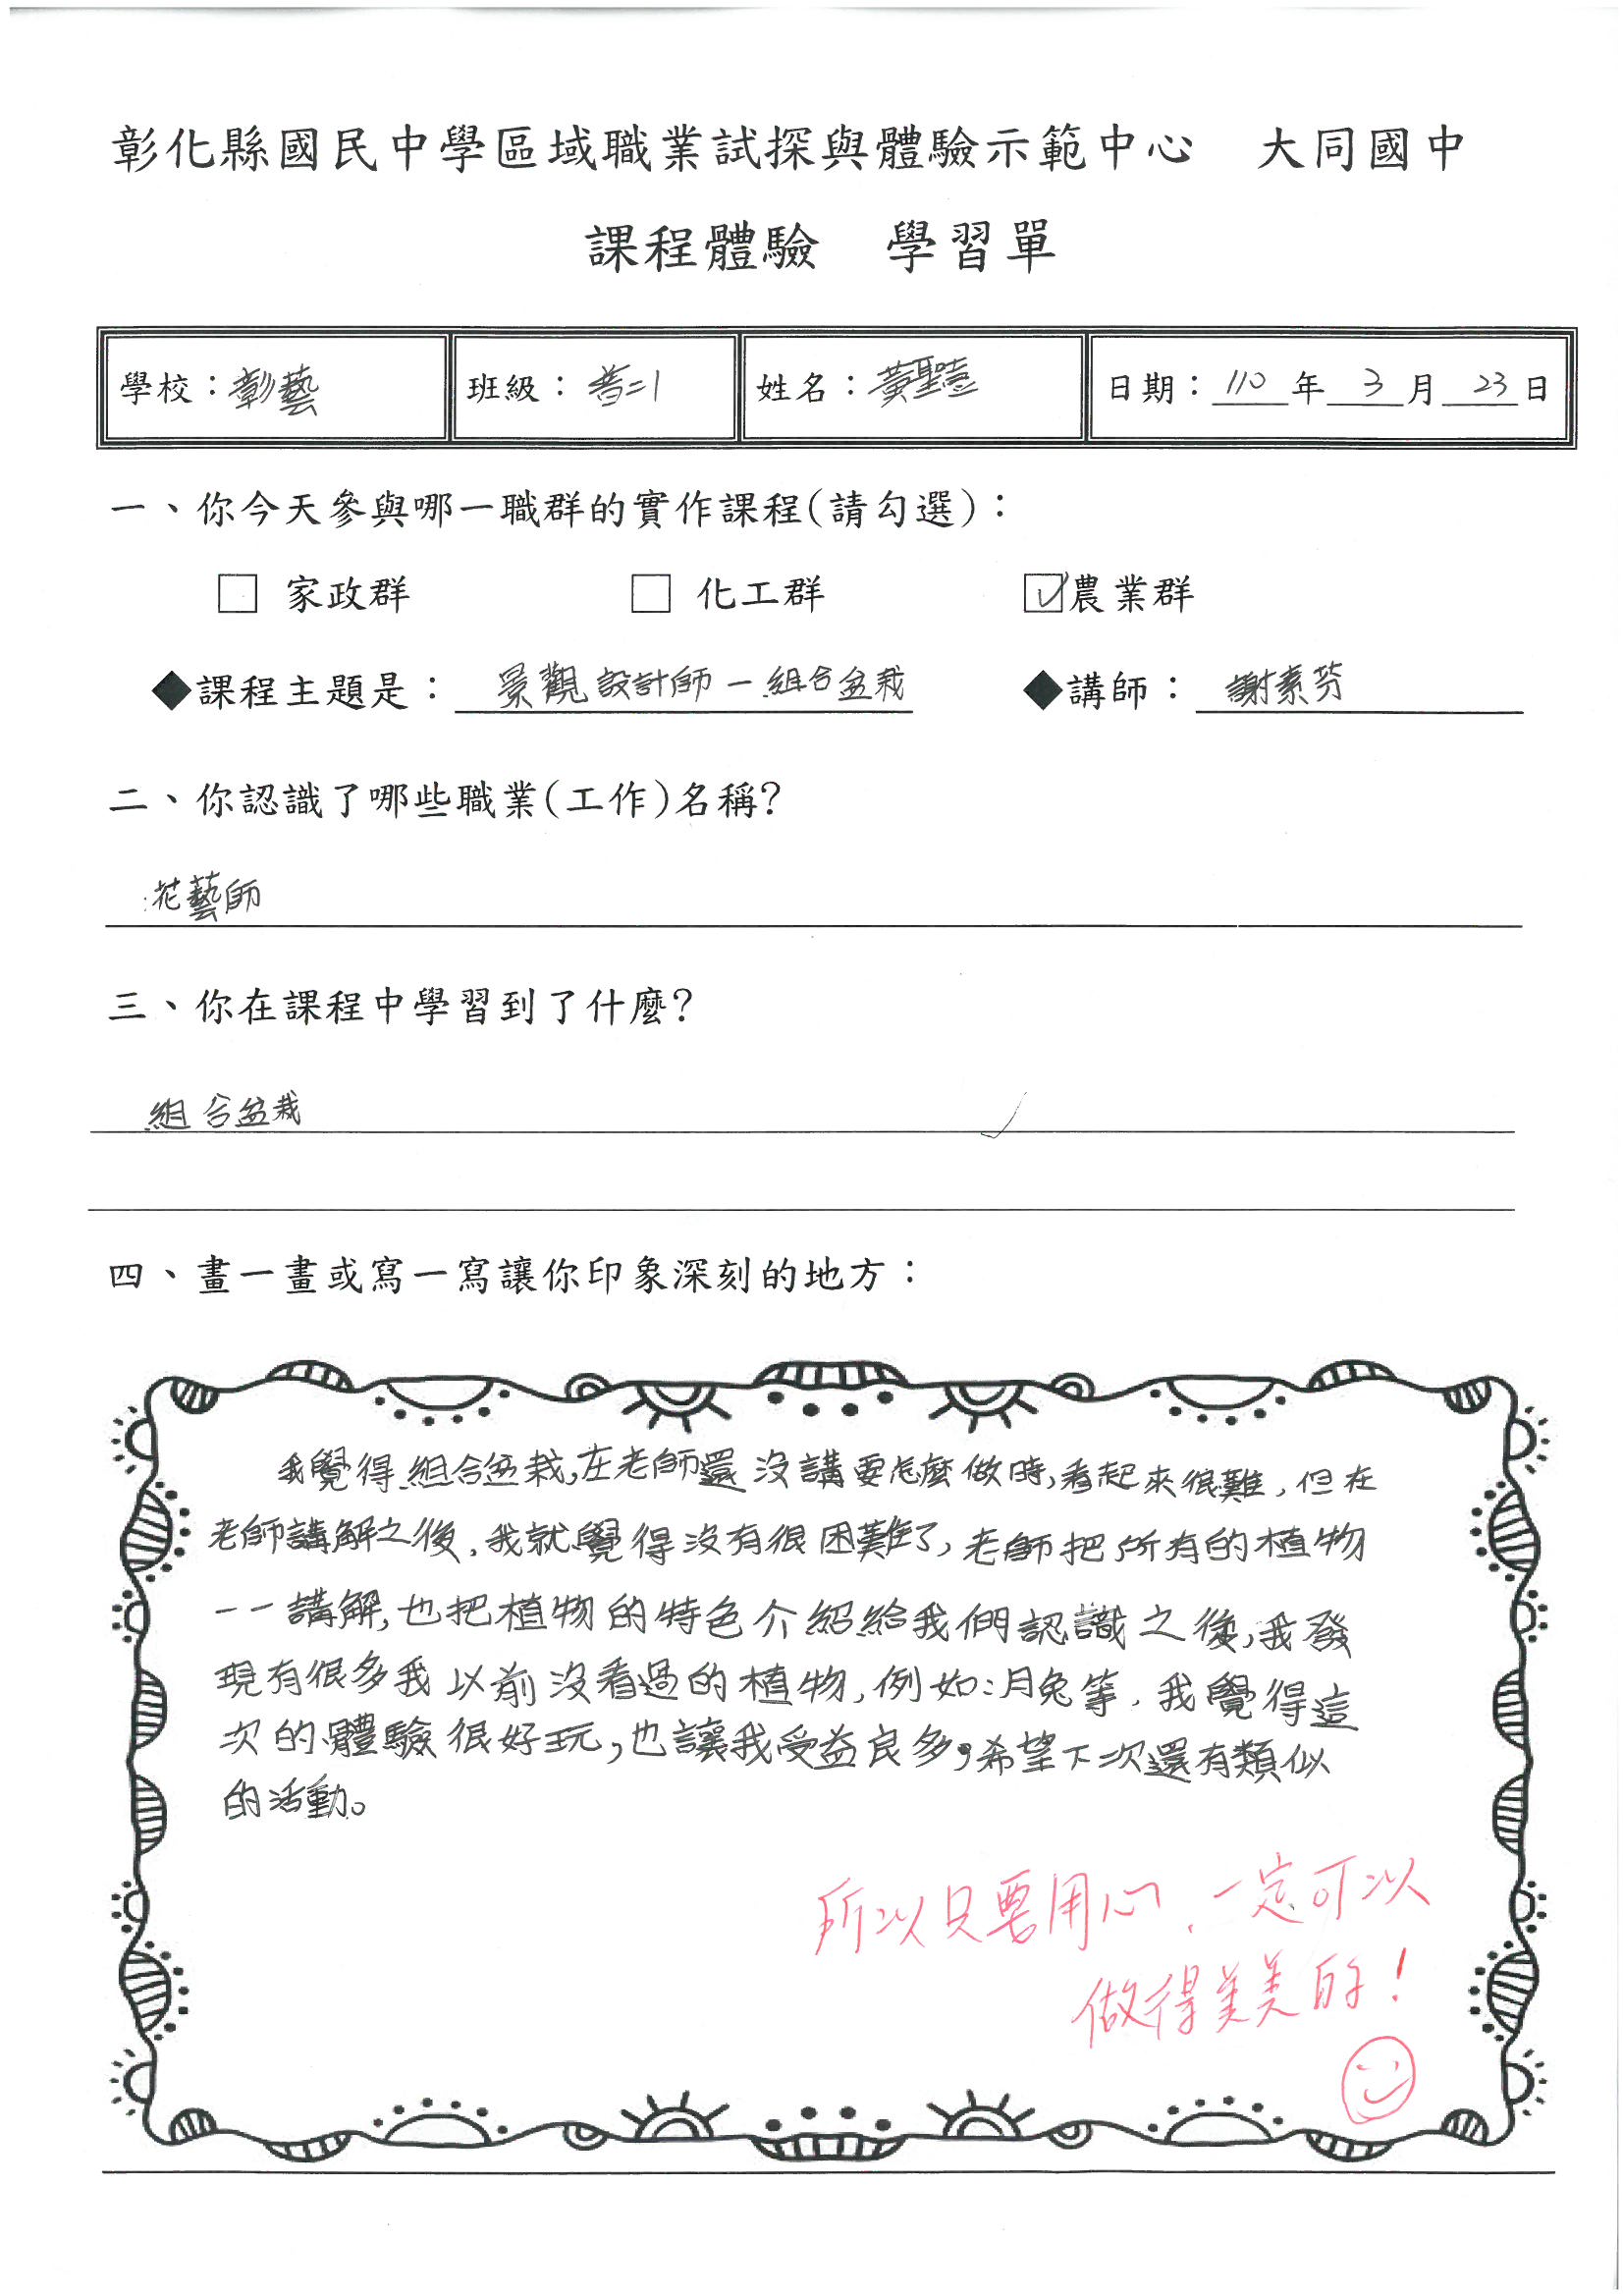 彰化縣國民中學區域職業試探與體驗示範中心 大同國中
課程體驗 學習單
學校：彰藝 班級：普二1 姓名：黃聖 日期：110年3月23日
一、你今天參與哪一職群的實作課程(請勾選)：
□ 家政群 □ 化工群 ☑農業群
◆課程主題是：景觀設計師－組合盆栽 ◆講師：謝素芬
二、你認識了哪些職業(工作)名稱?
花藝師
三、你在課程中學習到了什麼?
組合盆栽
四、畫一畫或寫一寫讓你印象深刻的地方：
我覺得組合盆栽，在老師還沒講要怎麼做時，看起來很難，但在
老師講解之後，我就覺得沒有很困難了，老師把所有的植物
一一講解，也把植物的特色介紹給我們認識之後，我發
現有很多我以前沒看過的植物，例如：月兔等，我覺得這
次的體驗很好玩，也讓我受益良多，希望下次還有類似
的活動。
所以只要用心，一定可以
做得美美的！